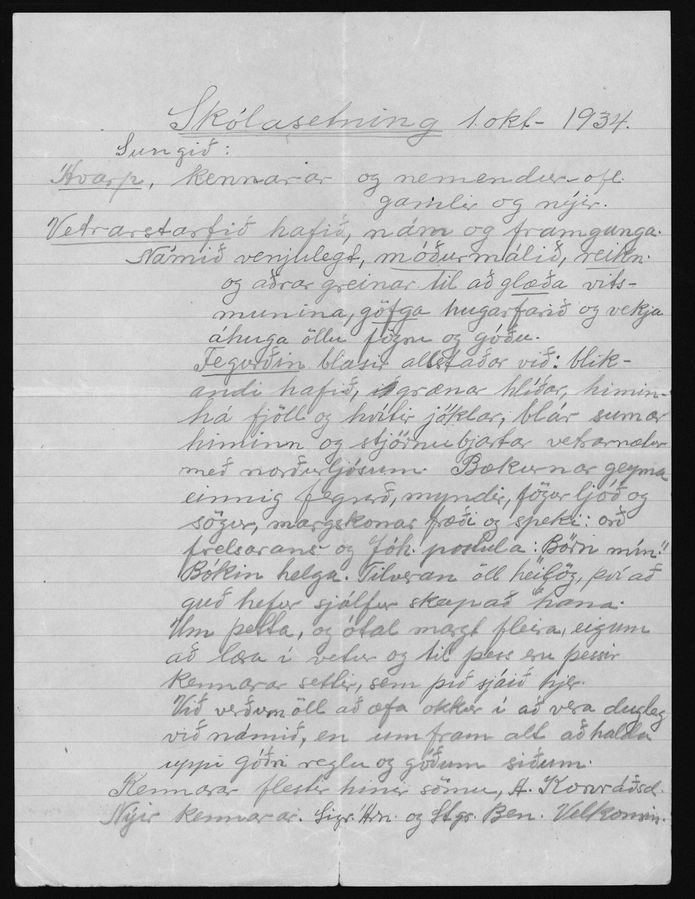 Skólasetning 1. okt - 1934.
Sungið:
Ávarp, kennarar og nemendur
gamlir og nýir.
Vetrarstarfið hafið, nám og framganga.
Námið venjulegt, móðurmálið, reikn.
og aðrar greinar til að glæða vits-
munina, göfga hugarfarið og vekja
áhuga öllu fögru og góðu.
Fegurðin blasir allstaðar við: blik-
andi hafið, igrænar hlíðar, himin-
há fjöll og hvítir jöklar, blár sumar
himinn og stjörnubjartar vetrarnætur
með norðurljósum. Bækurnar geyma
einnig fegurð, myndir, fögur ljóð og
sögur, margskonar fræði og speki: orð
frelsarans og Jóh. postula: "Börn mín"
Bókin helga. Tilveran öll heilög, því að
guð hefur sjálfur skapað hana.
Um þetta, og ótal margt fleira, eigum
að læra í vetur og til þess eru þessir
kennarar settir, sem þið sjáið hjer.
Við verðum öll að æfa okkur í að vera dugleg
við námið, en umfram alt að halda
uppi góðri reglu og góðum siðum.
Kennarar flestir hinir sömu, A. Konráðsd.
Nýir kennarar. Sigr. Árn. og Stgr. Ben. Velkomin.